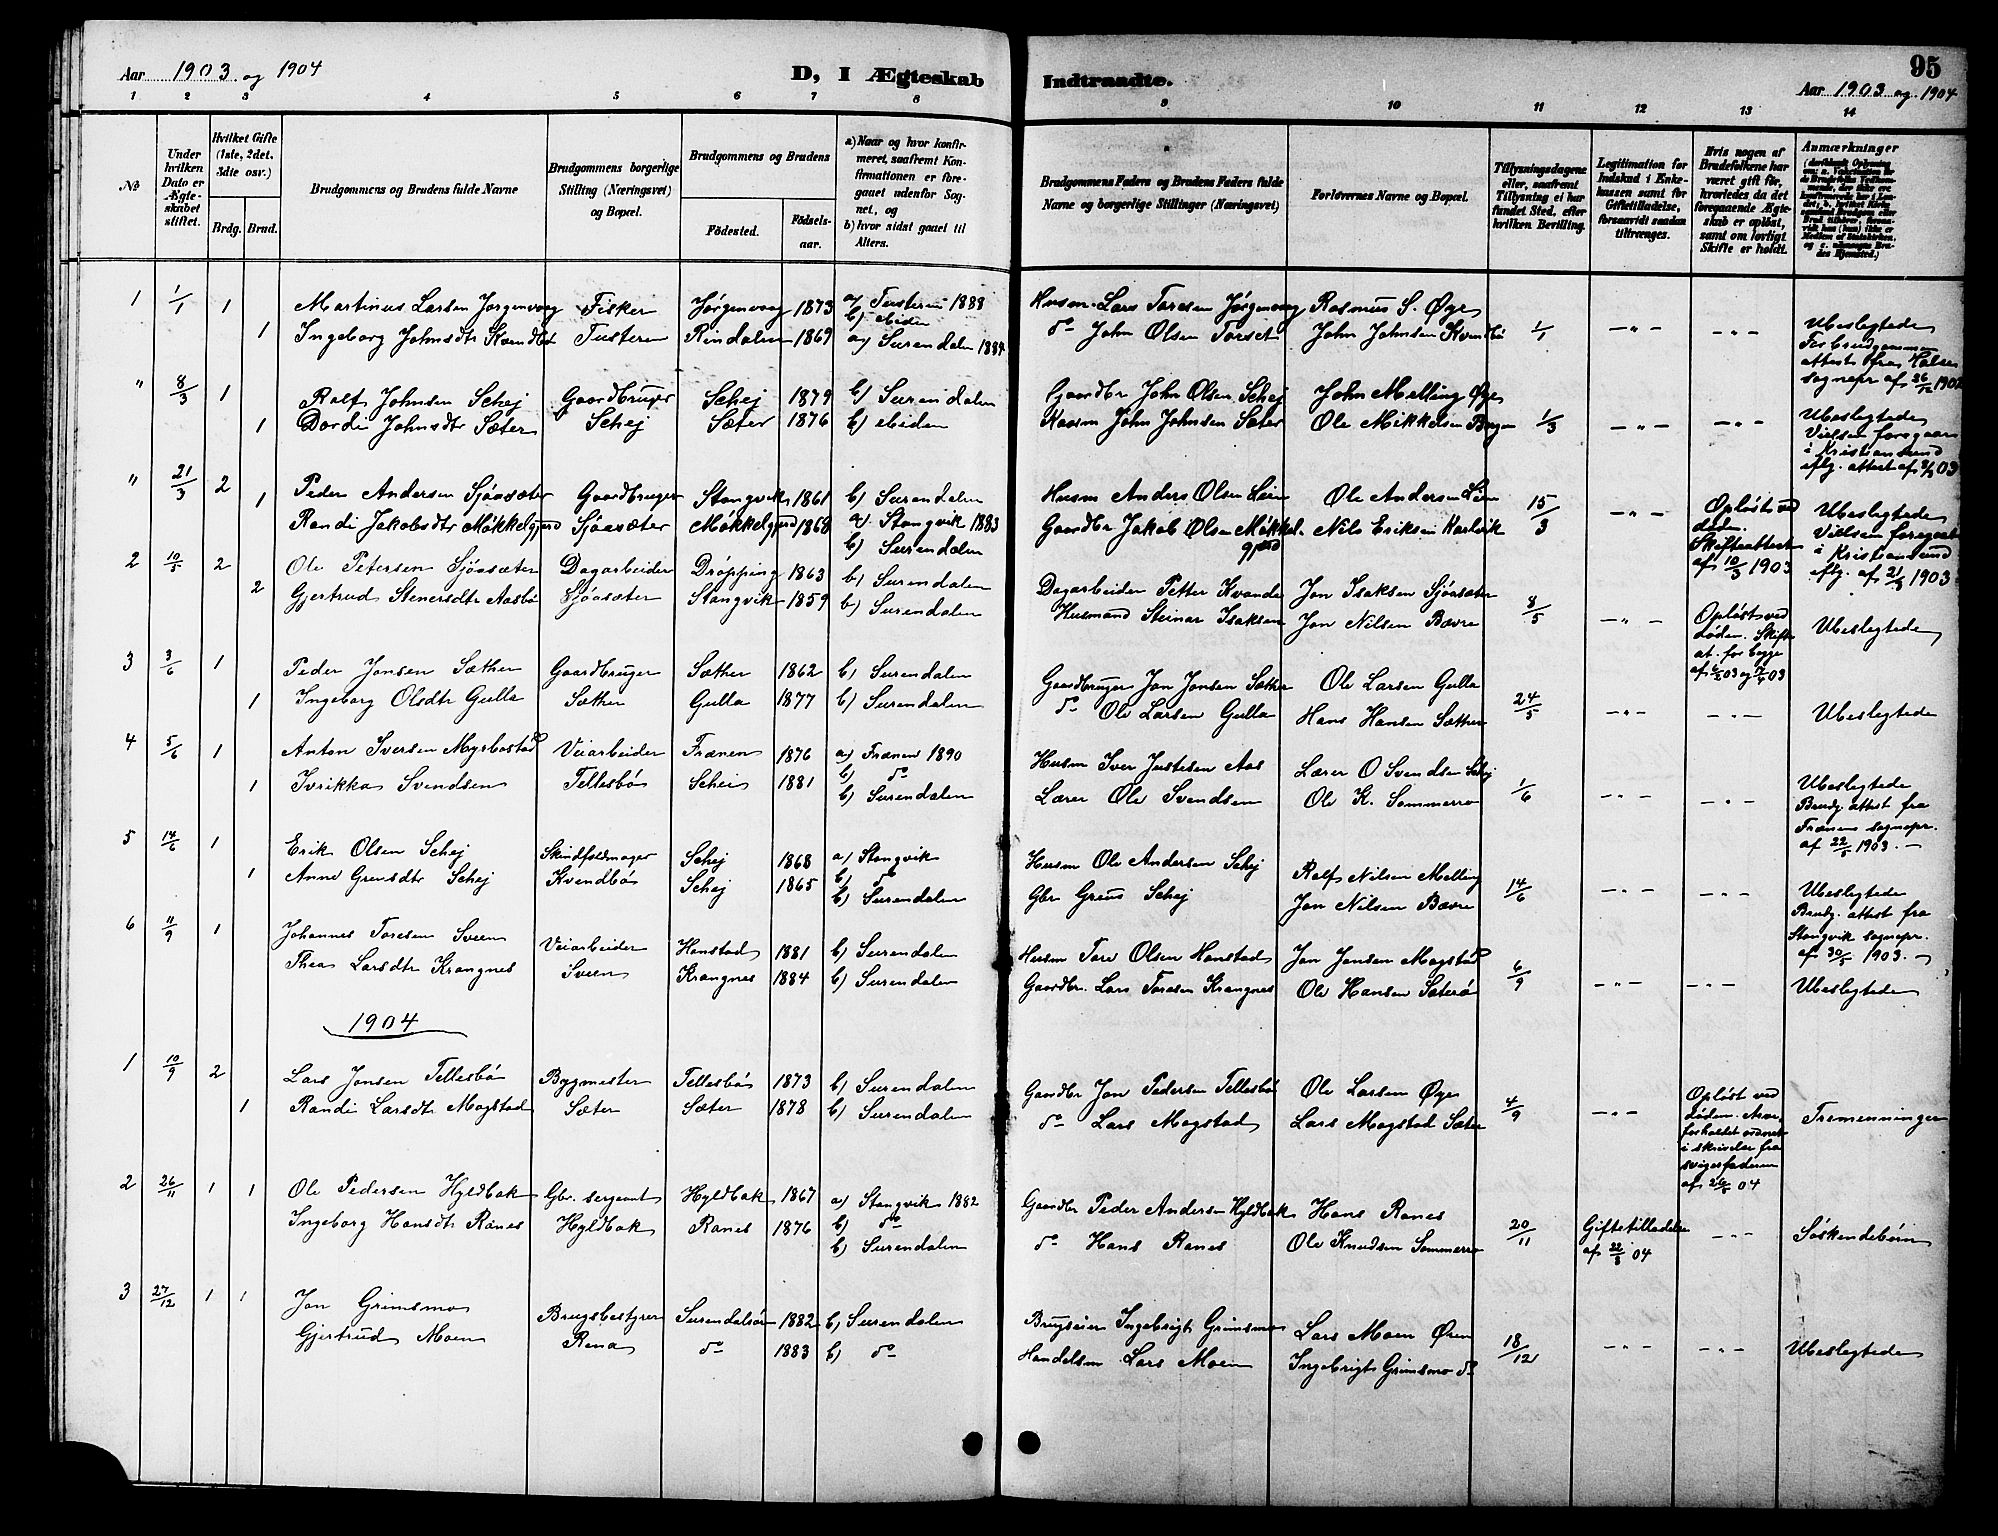 Aar 1903 og 1904
D, I Ægteskab
Indtraadte.
95
Aar 1903 og 1904
1 2 3 4 5 6 7 8 9 10 11 12 13 14
No
Under hvilken Dato er Ægteskabet stiftet.
Hvilket Gifte (1ste, 2det, 3dte osv.)
Brdg. Brud.
Brudgommens og Brudens fulde Navne
Brudgommens borgerlige Stilling (Næringsvei) og Bopæl.
Brudgommens og Brudens
Födested.
Födsels-aar.
a) Naar og hvor konfirmeret, saafremt Konfirmationen er foregaaet udenfor Sognet, og
b) hvor sidst gaaet til Alters.
Brudgommens Faders og Brudens Faders fulde Navne og borgerlige Stillinger (Næringsvei)
Forlovernes Navne og Bopæl.
Tillysningsdagene eller, saafremt Tillysning ei har fundet Sted, efter hvilken Bevilling.
Legitimation for Indskud i Enkekassen samt for Giftetilladelse, forsaavidt saadan tiltrænges.
Hvis nogen af Brudefolkene har været gift för, hvorledes da det foregaaende Ægteskab er oplöst, samt om lovligt Skifte er holdt.
Anmærkninger
1 1/1 1 Martinus Larsen Jørgenvaag Fisker Jørgenvaag 1873 a) Tusteren 1888 b) ibiden Husm. Lars Toresen Jørgenvaag Rasmus S. Øye
1 Ingeborg Johnsdtr Kvendbø Tusteren Rindalen 1869 a) Surendalen 1884 do John Olsen Torset John Johnsen Kvendbø 1/1 -"- -"- Ubeslegtede
For brudgommen
attest fra Halse
sognepr af 26/12 1902
" 8/3 1 Ralf Johnsen Schej Gaardbruger Schej 1879 b) Surendalen Gaardbr John Olsen Schej John Melling Øye
1 Dordi Johnsdtr Sæter Schej Sæter 1876 b) ibiden John Johnsen Sæter Ole Mikkelsen 1/3 -"- -"- Ubeslegtede
Vielsen foregaar
i Kristiansund
eflg. attest af 03
" 21/3 2 Peder Andersen Sjøasæter Gaardbruger Stangvik 1861 b) Surendalen Husm Anders Olsen Lien Ole Andersen Lien
1 Randi Jakobsdtr Møkkelgjerd Sjøasæter Møkkelgjerd 1868 a) Stangvik 1883 Gaardbr Jakob Olsen Møkkelgjerd Nils Eriksen Karlsvik 15/3 -"- Opløst ved døden. Skifteattest af 10/3 1903 Ubeslegtede
b) Surendalen
Vielsen foregaat
i Kristiansund
eflg. af 21/3 1903
2 10/5 2 Ole Petersen Sjøasæter Dagarbeider Drøpping 1863 b) Surendalen Dagarbeider Petter Kvande Jon Isaksen Sjøasæter
2 Gjertrud Stenersdtr Aasbø Sjøasæter Stangvik 1859 b) Surendalen Husmand Steinar Isaksen Jon Nilsen Bævre 8/5 -"- Opløst ved døden. Skifte at. for begge af 03 og 03 Ubeslegtede
3 3/6 1 Peder Jonsen Sæther Gaardbruger Sæther 1862 b) Surendalen Gaardbruger Jon Jonsen Sæther Ole Larsen Gulla
1 Ingeborg Olsdtr Gulla Sæther Gulla 1877 b) Surendalen do Ole Larsen Gulla Hans Hansen Sæther 24/5 -"- -"- Ubeslegtede
4 5/6 1 Anton Iversen Myrbostad Veiarbeider Frænen 1876 a) Frænen 1890 b) do Husm Iver Justesen Aas Lærer O Svendsen Schej
1 Ivrikka Svendsen Tellesbø Schei 1881 b) Surendalen Lærer Ole Svendsen Ole K. Sommerro 1/6 -"- -"- Ubeslegtede
Brudg. attest fra
Frænens sognepr.
af 22/5 1903.-
5 14/6 1 Erik Olsen Schej Skindfeldmager Schej 1868 a) Stangvik b) do Husm Ole Andersen Schej Ralf Nilsen Melling
1 Anne Grensdtr Schej Kvendbø Schej 1865 b) Surendalen Gbr Schej Jon Nilsen Bævre 14/6 -"- -"- Ubeslegtede
Brudg. attest fra
Stangvik sognepr.
af 30/5 1903.-
6 11/9 1 Johannes Toresen Sveen Veiarbeider Hanstad 1881 b) Surendalen Husm Tore Olsen Hanstad Jon Jonsen Magstad
Thea Larsdtr Krangnes Sveen Krangnes 1884 b) Surendalen Gaardbr. Lars Toresen Krangnes Ole Hansen Sæterø 6/9 -"- -"- Ubeslegtede
1904
1 10/9 2 Lars Jonsen Tellesbø Bygmester Tellesbø 1873 b) Surendalen Gaardbr Jon Pedersen Tellesbø Ole Larsen Øye
1 Randi Larsdtr Magstad Sæter Sæter 1878 b) Surendalen do Lars Magstad Lars Magstad Sæter 4/9 -"- Opløst ved døden. Arveforholdet ordnet i skrivelse fra svigerfaderen af 04 Tremenninger
2 26/11 1 1 Ole Pedersen Hyldbak Gbr. sergeant Hyldbak 1867 a) Stangvik 1882 b) do Gaardbr Peder Andersen Hyldbak Hans Ranes
Ingeborg Hansdtr Ranes Hyldbak Ranes 1876 b) Surendalen do Hans Ranes Ole Knudsen Sommerro 20/11 Giftetilladelse af 22/8 04 -"- Søskendebørn
3 27/12 1 1 Jon Grimsmo Brugsbestyrer Surendalsør 1882 b) Surendalen Brugseier Ingebrigt Grimsmo Lars Moen Øren
Gjertrud Moen Rena do 1883 b) do Handelsm Lars Moen Ingebrigt Grimsmo do 18/12 -"- -"- Ubeslegtede